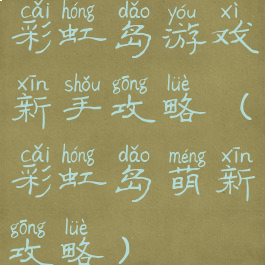 cǎi hóng dǎo yóu xì
彩虹岛游戏
xīn shǒu gōng lüè
新手攻略（
cǎi hóng dǎo méng xīn
彩虹岛萌新
gōng lüè
攻略）